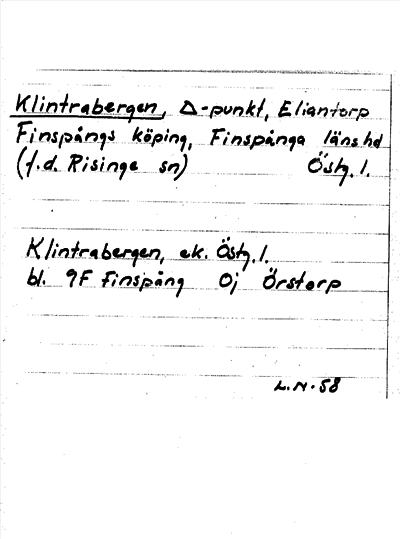 Klintrabergen, Δ-punkt, Eliantorp
Finspångs köping, Finspånga läns hd
(f.d. Risinge sn) Östg. l.
Klintrabergen, ek. Östg. l.
bl. 9F Finspång 0j Örstorp
L.N. 58